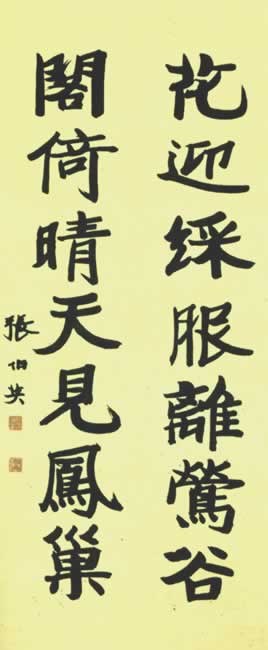 花迎綵服離鶯谷
閣倚晴天見鳳巢
張伯英